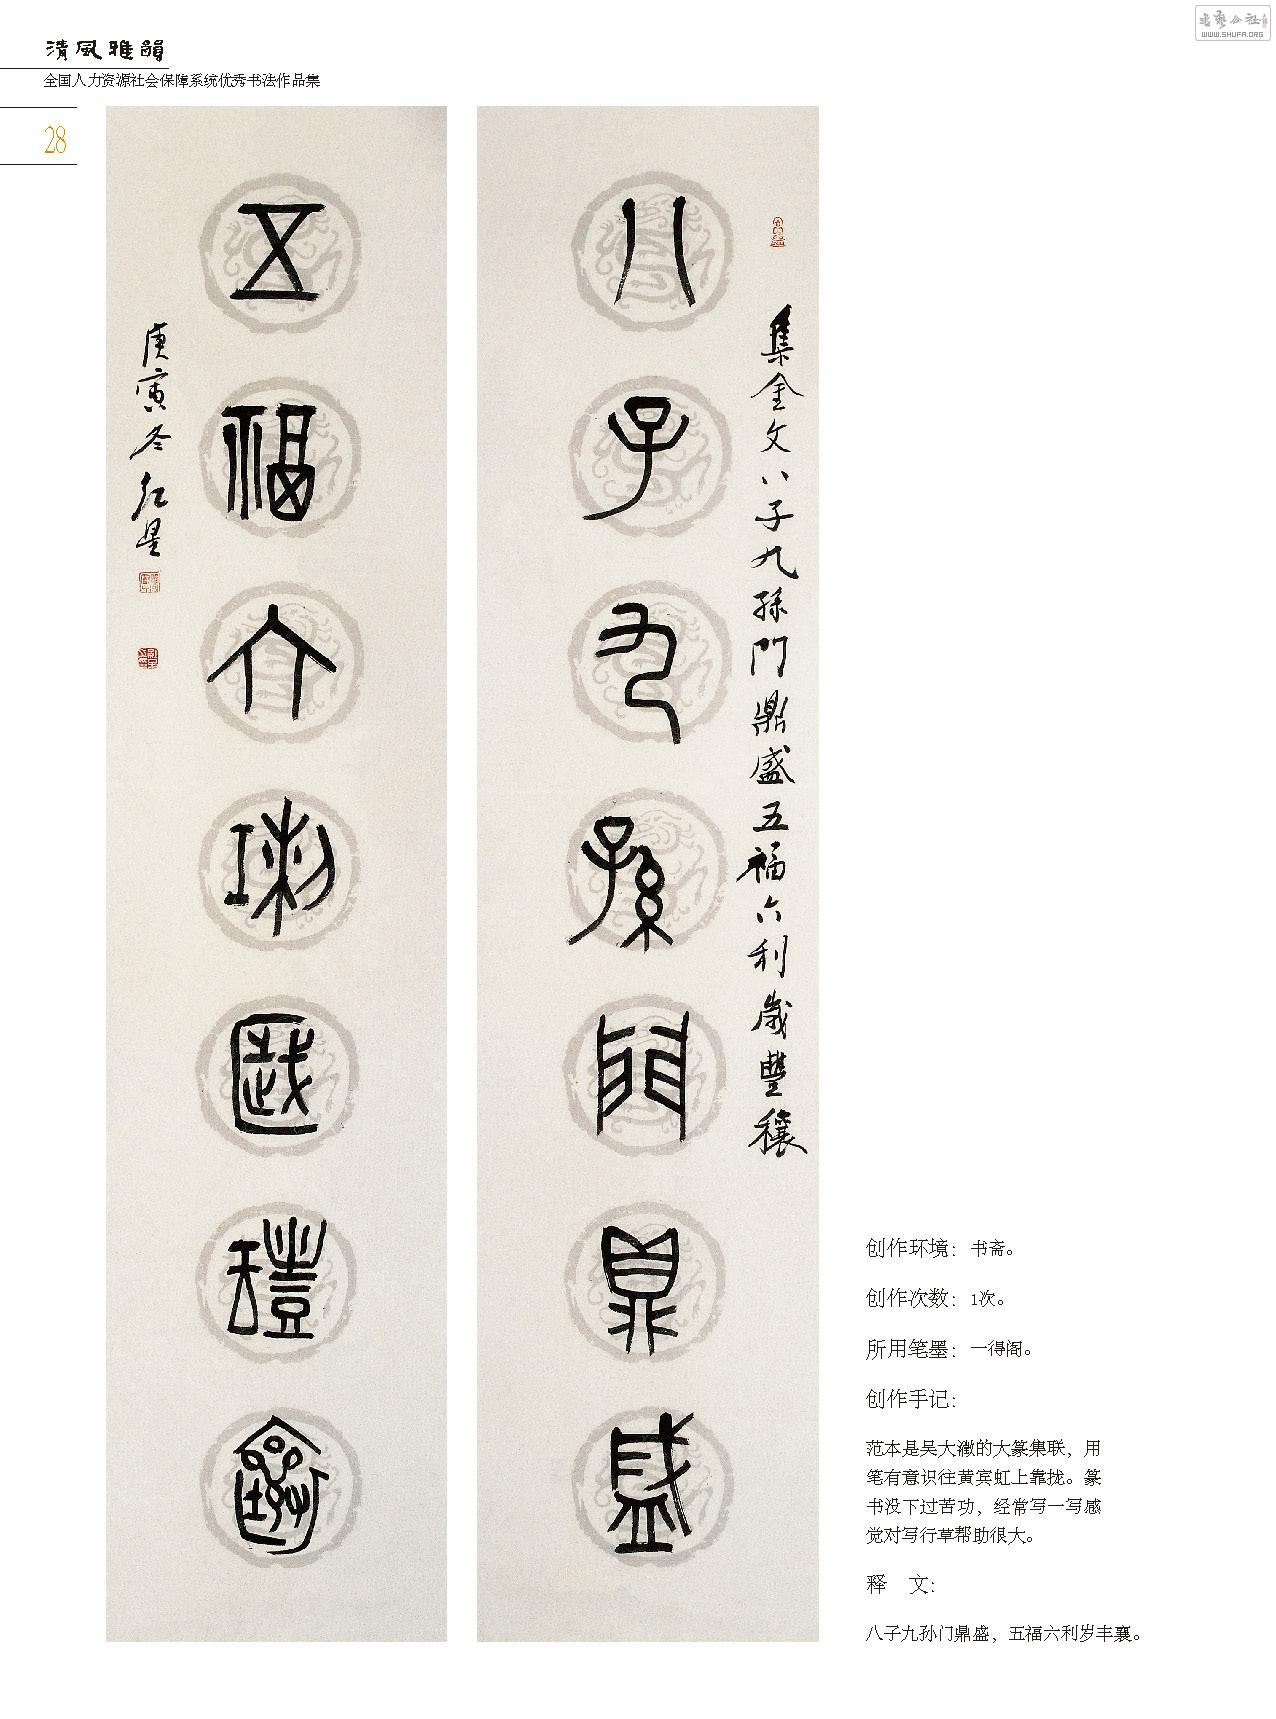 书艺公社
WWW.SHUFA.ORG
清風雅韻
全国人力资源社会保障系统优秀书法作品集
28
八子九孫門鼎盛
集金文八子九孫門鼎盛五福六利歲豐穰
五福六利歲豐穰
庚寅冬红星
创作环境：书斋。
创作次数：1次。
所用笔墨：一得阁。
创作手记：
范本是吴大澂的大篆集联，用
笔有意识往黄宾虹上靠拢。篆
书没下过苦功，经常写一写感
觉对写行草帮助很大。
释　文：
八子九孙门鼎盛，五福六利岁丰襄。